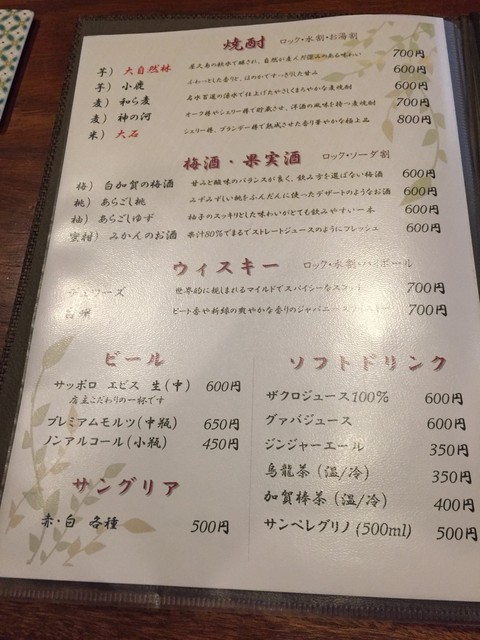 焼酎 ロック・水割・お湯割
芋） 大自然林 屋久島の軟水で醸され、自然が産んだ深みのある味わい 700円
芋） 小鹿 ふわっとした香りと、ほのかですっきりした甘み 600円
麦） 和ら麦 名水百選の清水で仕上げたやさしくまろやかな麦焼酎 600円
麦） 神の河 オーク樽やシェリー樽で貯蔵させ、洋酒の風味を持つ麦焼酎 700円
米） 大石 シェリー樽、ブランデー樽で熟成させた香り華やかな極上品 800円
梅酒・果実酒 ロック・ソーダ割
梅） 白加賀の梅酒 甘みと酸味のバランスが良く、飲み方を選ばない梅酒 600円
桃） あらごし桃 みずみずしい桃をふんだんに使ったデザートのようなお酒 600円
柚） あらごしゆず 柚子のスッキリとした味わいがとても飲みやすい一本 600円
蜜柑） みかんのお酒 果汁80％でまるでストレートジュースのようにフレッシュ 600円
ウィスキー ロック・水割・ハイボール
デュワーズ 世界的に親しまれるマイルドでスパイシーなスコッチ 700円
ピート香や新緑の爽やかな香りのジャパニーズウィスキー 700円
ビール
サッポロ エビス 生（中） 600円
店主こだわりの一杯です
プレミアムモルツ（中瓶） 650円
ノンアルコール（小瓶） 450円
サングリア
赤・白 各種 500円
ソフトドリンク
ザクロジュース100％ 600円
グァバジュース 600円
ジンジャーエール 350円
烏龍茶（温/冷） 350円
加賀棒茶（温/冷） 400円
サンペレグリノ（500ml） 500円